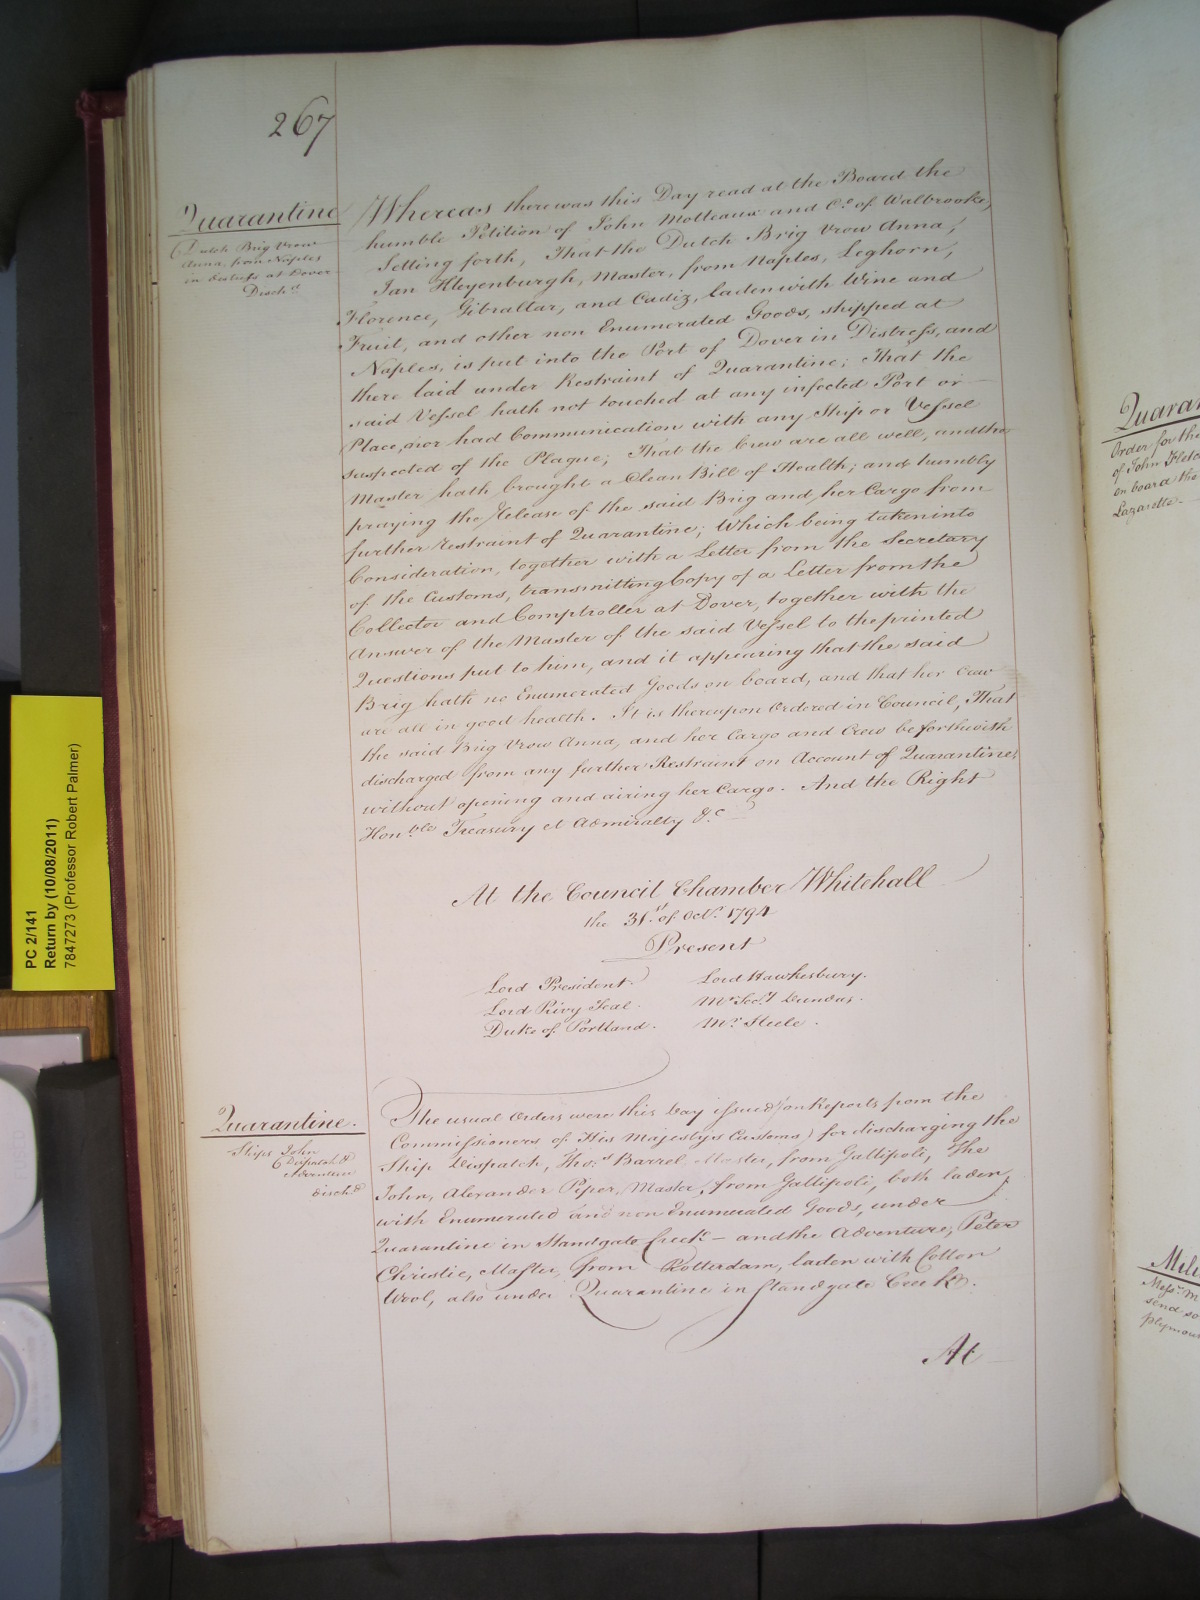 267
Quarantine
Dutch Brig Vrow
Anna, from Naples
in distress at Dover
Disch.d
Whereas there was this Day read at the Board the
humble Petition of John Motteaux and C.o of Walbrooke,
Setting forth, That the Dutch Brig Vrow Anna,
Jan Heyenburgh, Master, from Naples, Leghorn,
Florence, Gibraltar, and Cadiz, laden with Wine and
Fruit, and other non Enumerated Goods, shipped at
Naples, is put into the Port of Dover in Distress, and
there laid under Restraint of Quarantine; That the
said Vessel hath not touched at any infected Port or
Place, nor had Communication with any Ship or Vessel
suspected of the Plague; That the Crew are all well, and the
Master hath brought a Clean Bill of Health; and humbly
praying the Release of the said Brig and her Cargo from
further Restraint of Quarantine; Which being taken into
Consideration, together with a Letter from the Secretary
of the Customs, transmitting Copy of a Letter from the
Collector and Comptroller at Dover, together with the
Answer of the Master of the said Vessel to the printed
Questions put to him, and it appearing that the said
Brig hath no Enumerated Goods on board, and that her Crew
are all in good health. It is thereupon Ordered in Council, That
the said Brig Vrow Anna, and her Cargo and Crew be forthwith
discharged from any further Restraint on Account of Quarantine,
without opening and airing her Cargo. And the Right
Hon.ble Treasury & Admiralty &.c
At the Council Chamber Whitehall
the 31.st of Oct.r 1794
Present
Lord President. Lord Hawkesbury.
Lord Privy Seal. M.r Sec.y Dundas.
Duke of Portland. M.r Steele.
Quarantine.
Ships John
Dispatch &
Adventure
disch.d
The usual Orders were this Day issued (on Reports from the
Commissioners of His Majesty's Customs) for discharging the
Ship Dispatch, Tho.s Barrel, Master, from Gallipoli, The
John, Alexander Piper, Master, from Gallipoli, both laden
with Enumerated and non Enumerated Goods, under
Quarantine in Standgate Creek – and the Adventure, Peter
Christie, Master, from Rotterdam, laden with Cotton
Wool, also under Quarantine in Standgate Creek.
At
PC 2/141
Return by (10/08/2011)
7847273 (Professor Robert Palmer)
Order for the
of John
on board the
Lazarette
send so